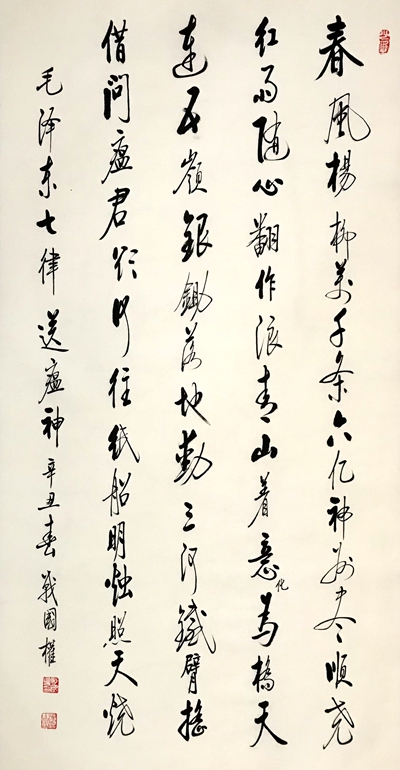 春風楊柳萬千条六亿神州尽順尧
红雨随心翻作浪青山着意化为橋天
連五嶺銀鋤落地動三河鐵臂搖
借問瘟君欲何往纸船明烛照天烧
毛泽东七律送瘟神 辛丑春 戰國權